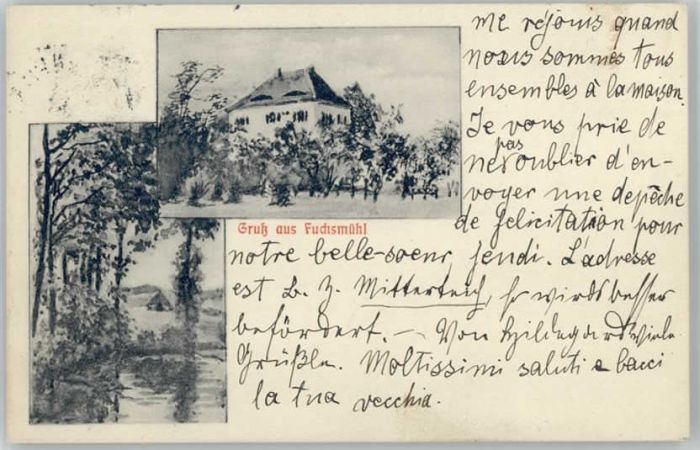 me réjouis quand
nous sommes tous
ensembles à la maison.
Je vous prie de
pas
ne oublier d'en-
voyer une depêche
de felicitation pour
Gruß aus Fuchsmühl
notre belle-soeur, jendi. L'adresse
est B. Z. Mitterteich, so wirds besser
befördert. — Von Hildegard viele
Grüßle. Moltissimi saluti e bacci
la tua vecchia.